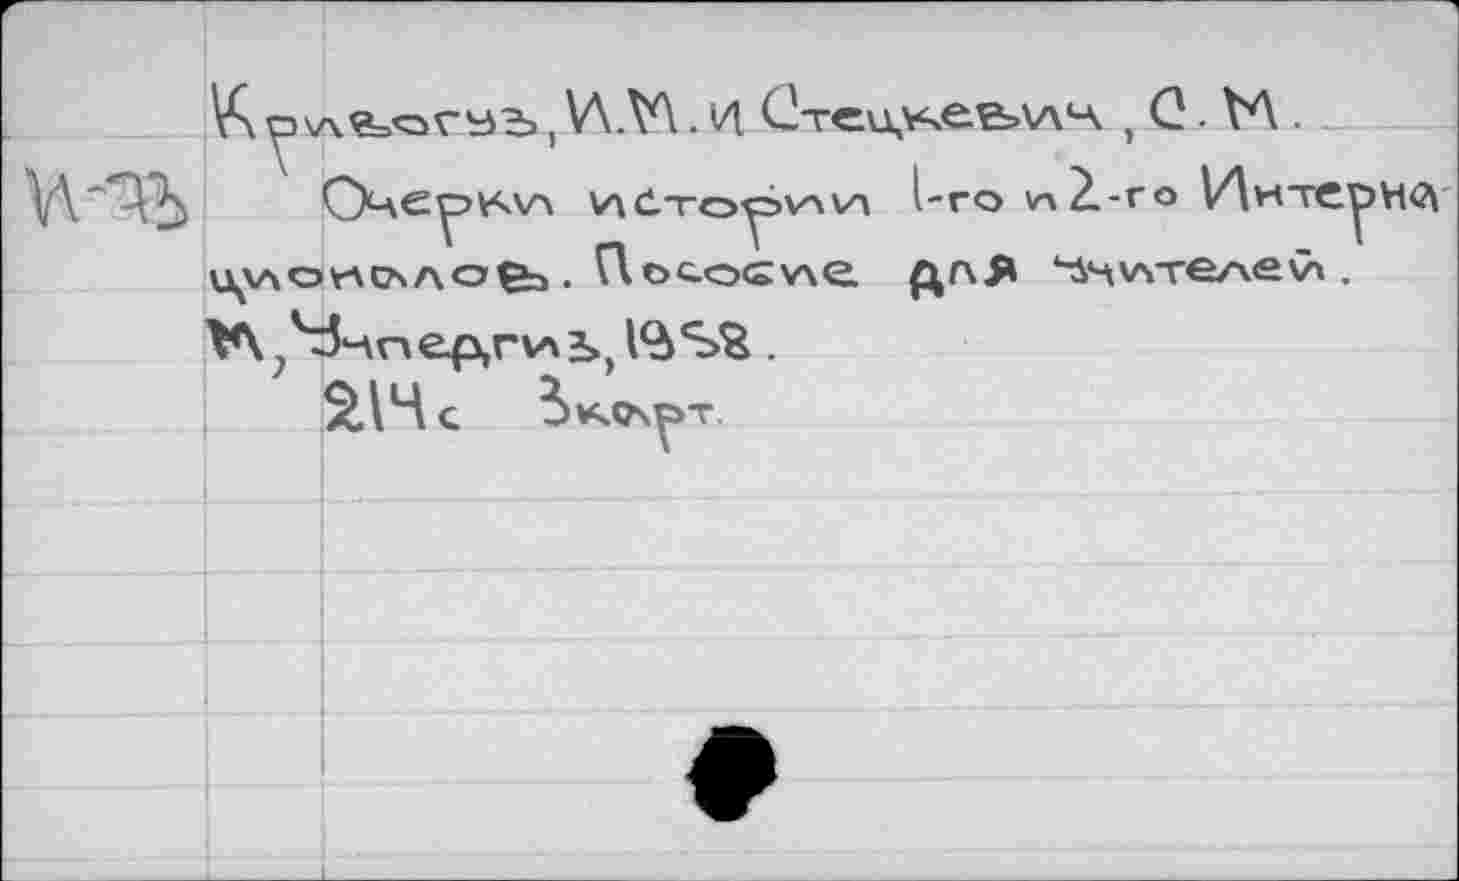 Кривогуз, И.М. и Стецкевич, С.М.
И-ЭЪ Очерки истории 1-го и 2-го Интерна
ционалов. Пособие для учителей.
М, Учпедгиз, 1958.
214 с Экарт